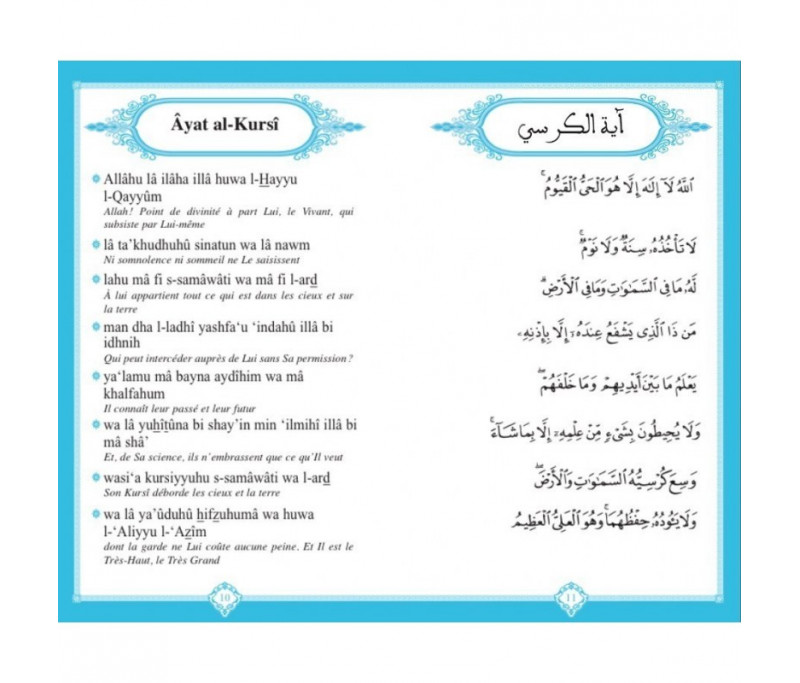 Âyat al-Kursî
Allâhu lâ ilâha illâ huwa l-Hayyu
l-Qayyûm
Allah! Point de divinité à part Lui, le Vivant, qui
subsiste par Lui-même
lâ ta’khudhuhû sinatun wa lâ nawm
Ni somnolence ni sommeil ne Le saisissent
lahu mâ fi s-samâwâti wa mâ fi l-ard
À lui appartient tout ce qui est dans les cieux et sur
la terre
man dha l-ladhî yashfa‘u ‘indahû illâ bi
idhnih
Qui peut intercéder auprès de Lui sans Sa permission ?
ya‘lamu mâ bayna aydîhim wa mâ
khalfahum
Il connaît leur passé et leur futur
wa lâ yuhîtûna bi shay’in min ‘ilmihî illâ bi
mâ shâ’
Et, de Sa science, ils n’embrassent que ce qu’Il veut
wasi‘a kursiyyuhu s-samâwâti wa l-ard
Son Kursî déborde les cieux et la terre
wa lâ ya’ûduhû hifzuhumâ wa huwa
l-‘Aliyyu l-‘Azîm
dont la garde ne Lui coûte aucune peine. Et Il est le
Très-Haut, le Très Grand
10
آية الكرسي
ٱللَّهُ لَآ إِلَٰهَ إِلَّا هُوَ ٱلْحَىُّ ٱلْقَيُّومُ ۚ
لَا تَأْخُذُهُۥ سِنَةٌ وَلَا نَوْمٌ ۚ
لَّهُۥ مَا فِى ٱلسَّمَٰوَٰتِ وَمَا فِى ٱلْأَرْضِ ۗ
مَن ذَا ٱلَّذِى يَشْفَعُ عِندَهُۥٓ إِلَّا بِإِذْنِهِۦ
يَعْلَمُ مَا بَيْنَ أَيْدِيهِمْ وَمَا خَلْفَهُمْ ۖ
وَلَا يُحِيطُونَ بِشَىْءٍ مِّنْ عِلْمِهِۦٓ إِلَّا بِمَا شَآءَ ۚ
وَسِعَ كُرْسِيُّهُ ٱلسَّمَٰوَٰتِ وَٱلْأَرْضَ ۖ
وَلَا يَـُٔودُهُۥ حِفْظُهُمَا ۚ وَهُوَ ٱلْعَلِىُّ ٱلْعَظِيمُ
11